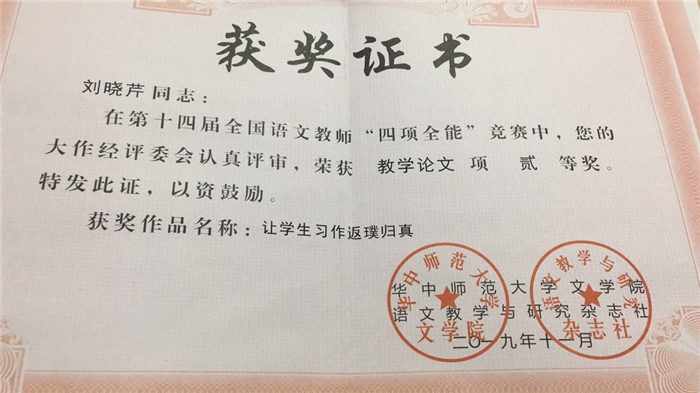 获奖证书
刘晓芹同志：
在第十四届全国语文教师“四项全能”竞赛中，您的
大作经评委会认真评审，荣获 教学论文 项 贰 等奖。
特发此证，以资鼓励。
获奖作品名称：让学生习作返璞归真
华中师范大学文学院
语文教学与研究杂志社
二〇一九年十一月
华中师范大学
文学院
语文教学与研究
杂志社